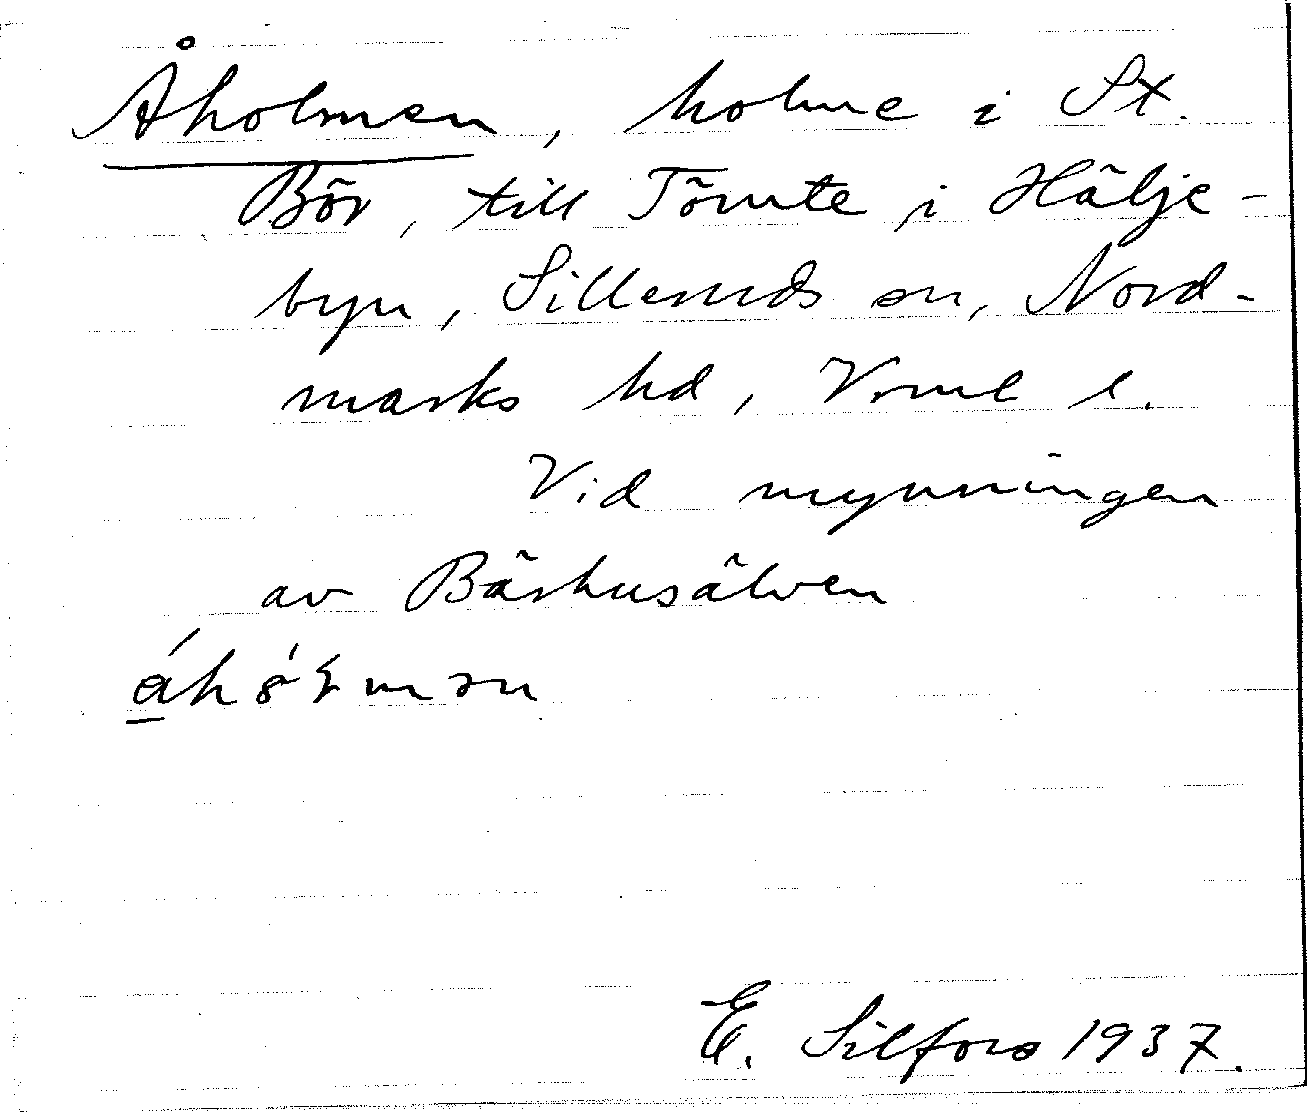 Åholmen, holme i St.
Bör, till Tömte i Hälje-
byn, Silleruds sn, Nord-
marks hd, Vrml l.
Vid mynningen
av Bärhusälven
E. Silfors 1937.